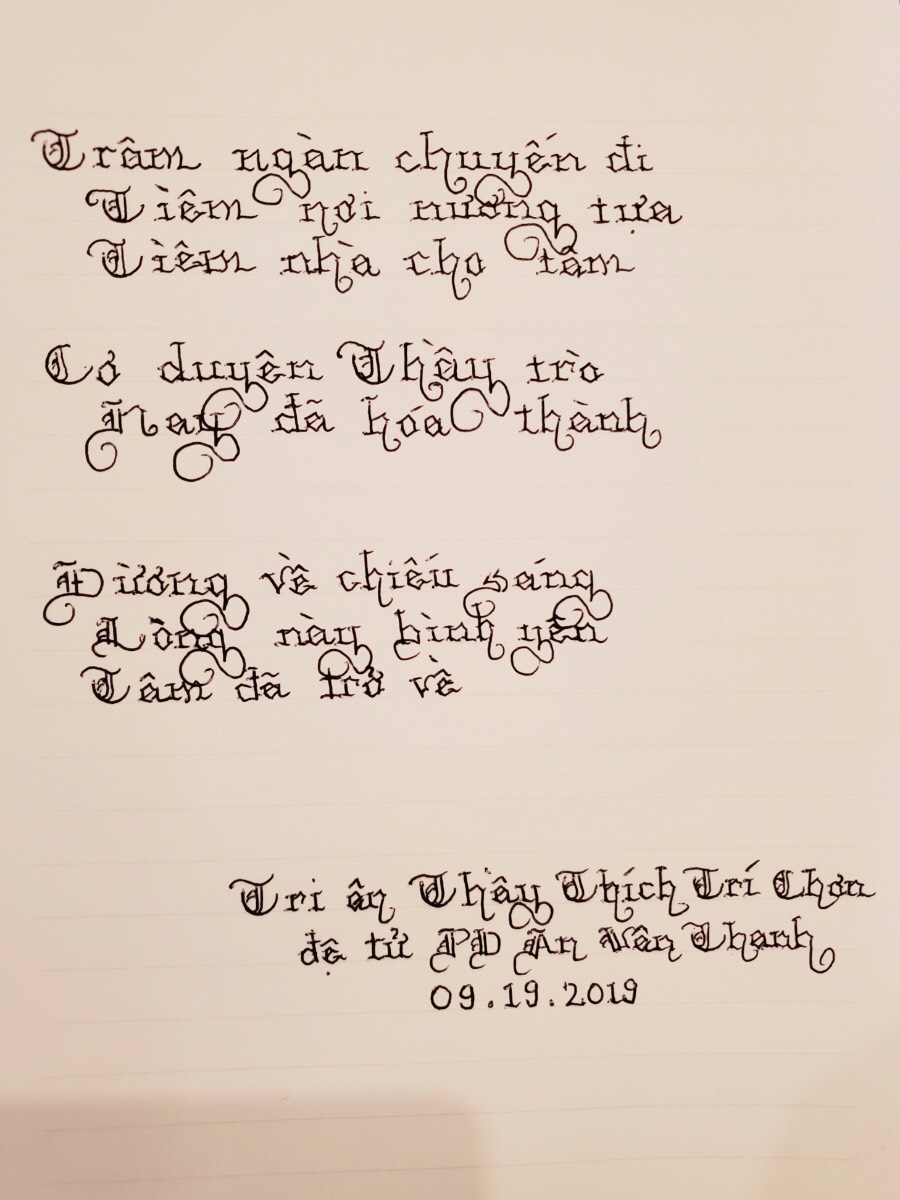 Trâm ngàn chuyến đi
Tìêm nơi nương tựa
Tìêm nhà cho tâm
Cơ duyên Thầy trò
Nay đã hóa thành
Đường về chiếu sáng
Lòng này bình yên
Tâm đã trở về
Tri ân Thầy Thích Trí Chơn
đệ tử PD Ân Vân Thanh
09.19.2019